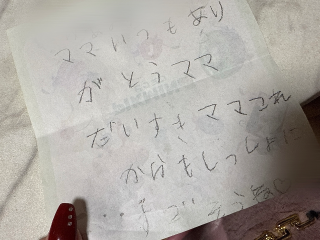 ママいつもあり
がとうママ
だいすきママこれ
からもしっしょに
すごそうね